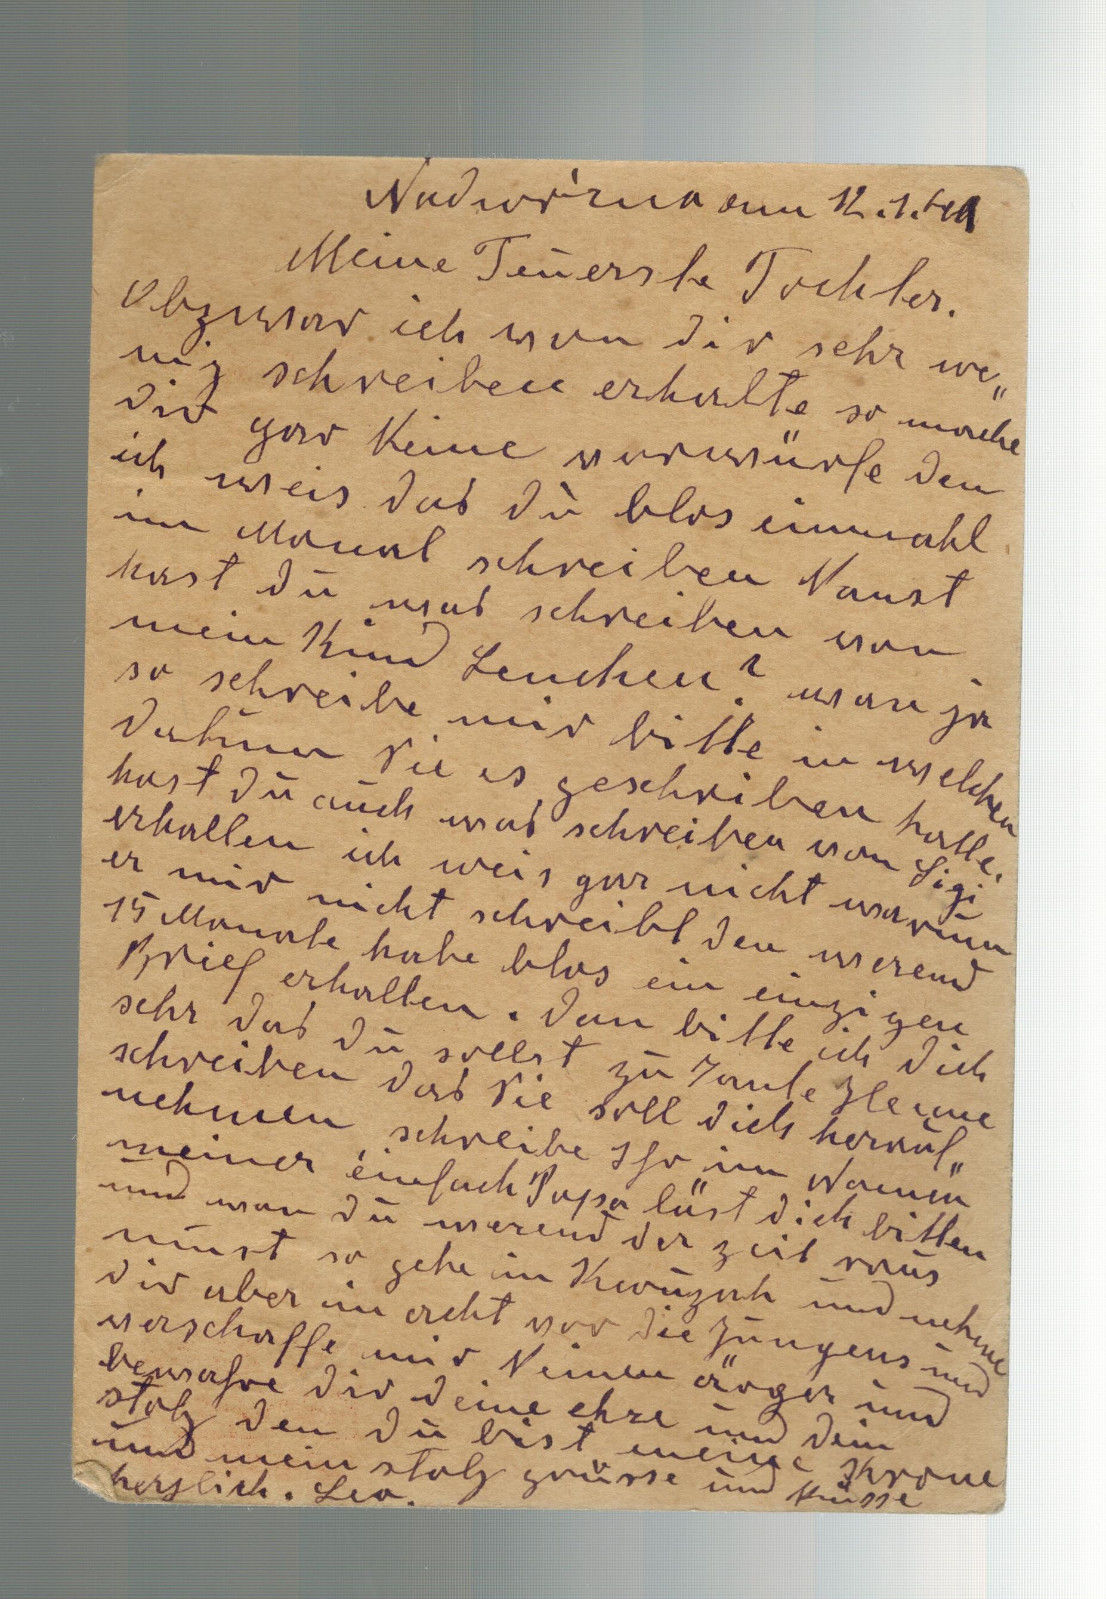 Nadwórna am 12.1.41
Meine Teuerste Tochter.
Obzwar ich won dir sehr we„
nig schreiben erhalte so mache
dir gar Keine worwürfe den
ich weis das du blos einmahl
im Monat schreiben Kanst
hast du was schreiben won
mein Kind Lenchen? wan ja
so schreibe mir bitte in welchen
datum Sie es geschriben hatte.
hast du auch was schreiben won Sigi
erhalten ich weis gar nicht warum
er mir nicht schreibt den werend
15 Monate habe blos ein einzigen
Brief erhalten. dan bitte ich dich
sehr das du sollst zu Tante
schreiben das Sie soll dich herauf„
nehmen, schreibe Ihr im Namen
meiner einfach Papa läst dich bitten
und wan du werend der zeit raus
must so gehe in Kwuzah und nehme
dir aber in acht vor die Jungens und
werschaffe mir Keinen ärger und
bewahre dir deine ehre und dein
stolz den du bist meine Krone
und mein stolz grüsse und Küsse
herzlich. Leo.